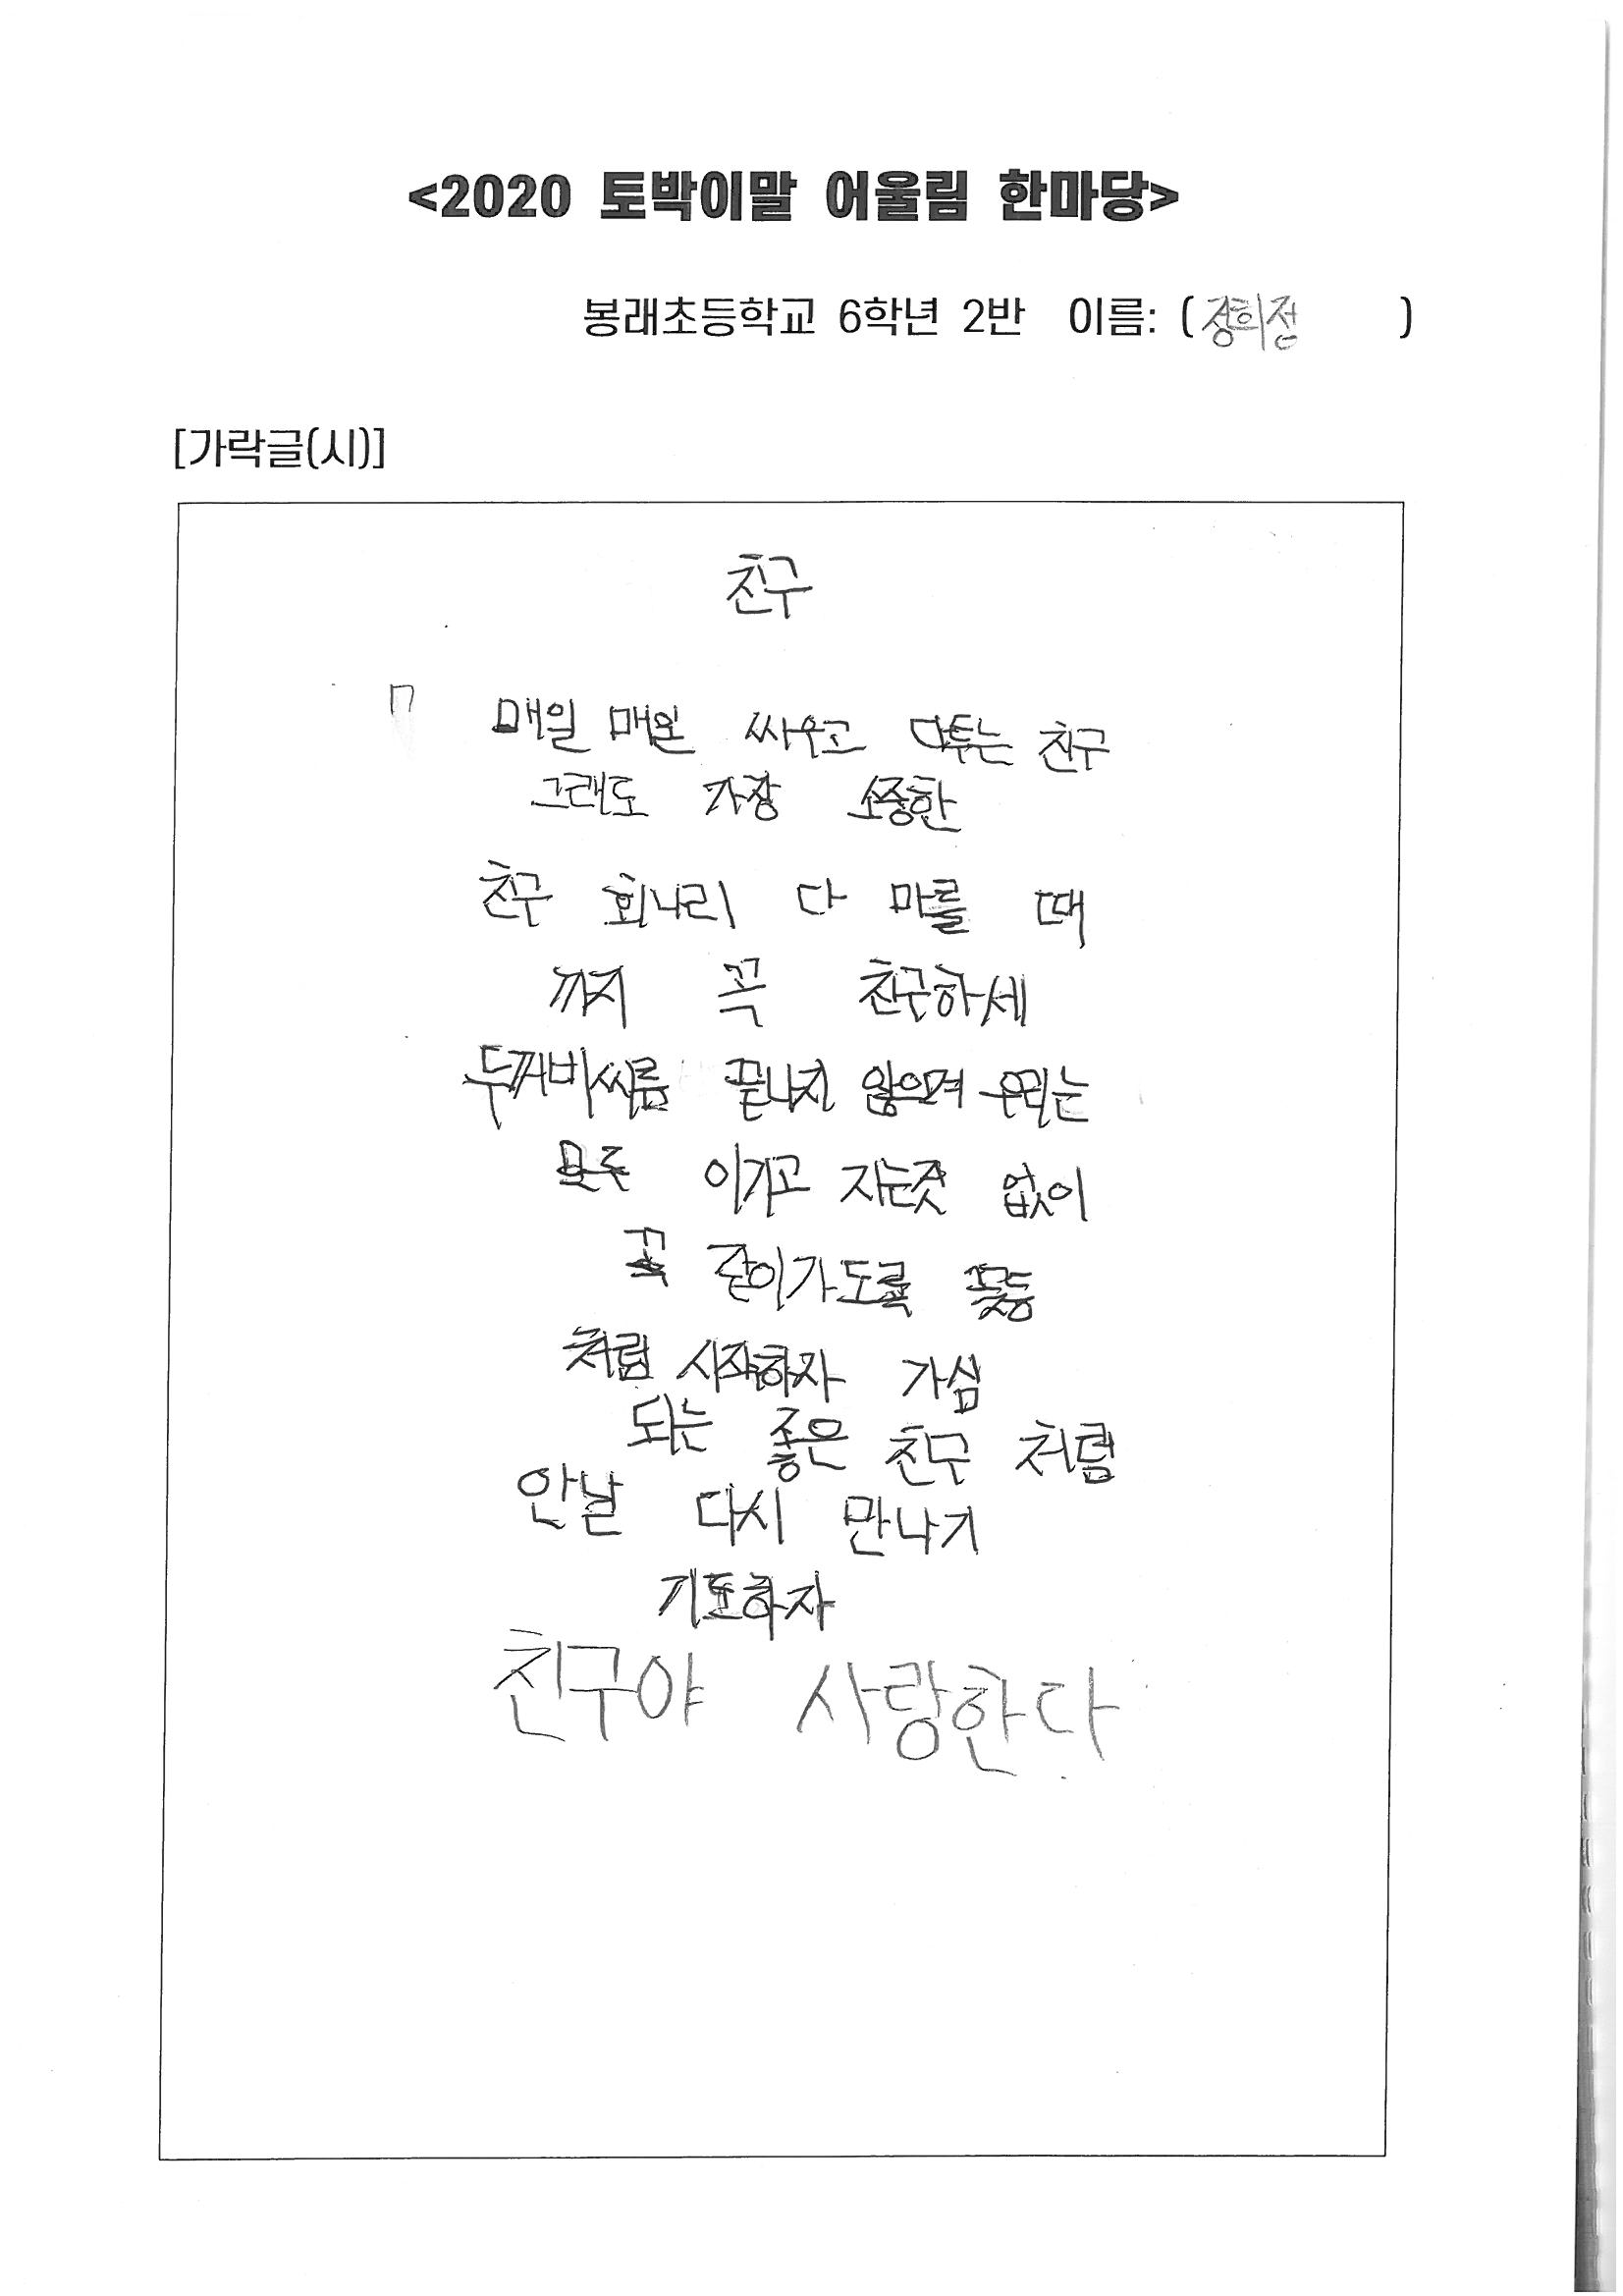 <2020 토박이말 어울림 한마당>
봉래초등학교 6학년 2반 이름: (정희정)
[가락글(시)]
친구
매일 매일 싸우고 다투는 친구
그래도 가장 소중한
친구 회나리 다 마를 때
까지 꼭 친구하세
두꺼비씨름 끝나지 않으며 우리는
모두 이기고 지는것 없이
꼭 같이가도록 꽃등
처럼 시작하자 가심
되는 좋은 친구 처럼
안날 다시 만나기
기도하자
친구야 사랑한다